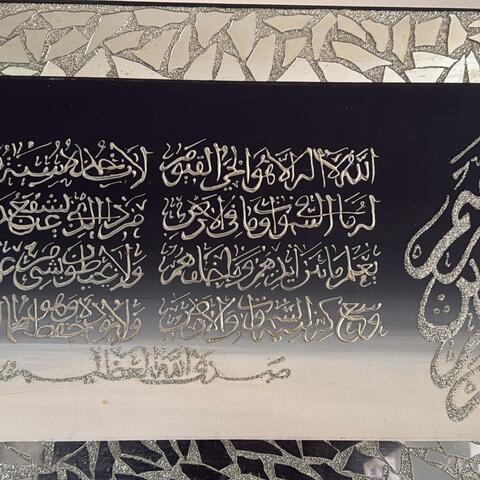 الله لا اله الا هو الحي القيوم لا تأخذه سنة
له ما في السموات وما في الارض من ذا الذي يشفع عند
يعلم ما بين ايديهم وما خلفهم ولا يحيطون بشيء
وسع كرسيه السموات والارض ولا يؤده حفظهما وهو
صدق الله العظيم